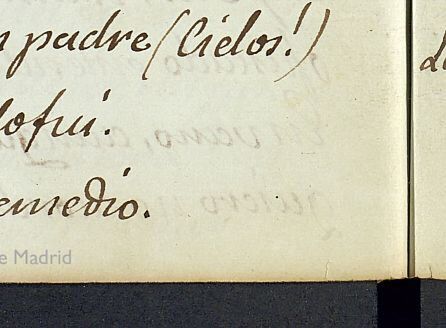 n padre (Cielos!)
lo fui.
emedio.
e Madrid